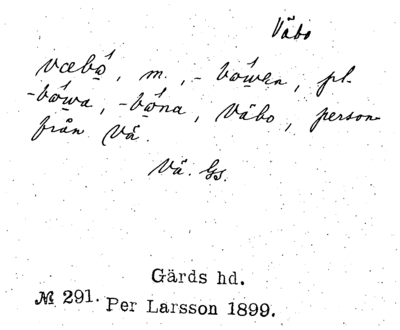 Väbo
væbo̱´, m., -bo̱´wen, pl.
-bo̱´wa, -bo̱´na, Väbo, person
från Vä.
Vä. Gs.
Gärds hd.
№ 291. Per Larsson 1899.